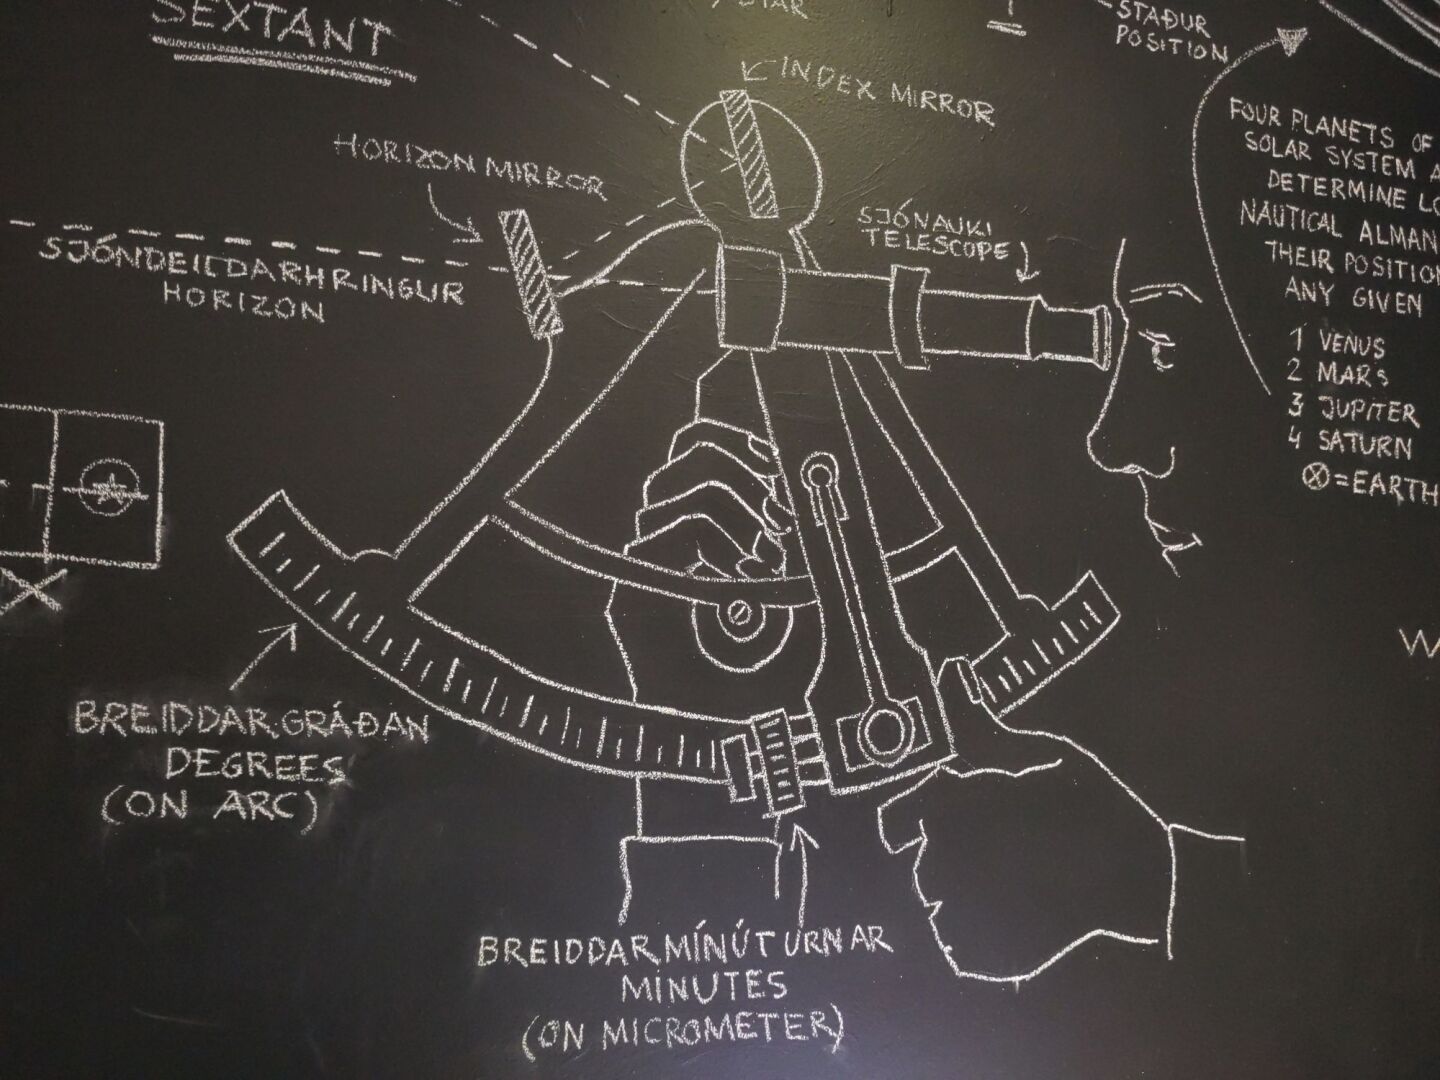 SEXTANT
STAR
STAÐUR
POSITION
INDEX MIRROR
HORIZON MIRROR
SJÓNAUKI
TELESCOPE
SJÓNDEILDARHRINGUR
HORIZON
FOUR PLANETS OF
SOLAR SYSTEM
DETERMINE
NAUTICAL
THEIR
ANY GIVEN
1 VENUS
2 MARS
3 JUPITER
4 SATURN
⊗=EARTH
BREIDDARGRÁÐAN
DEGREES
(ON ARC)
BREIDDARMÍNÚTURNAR
MINUTES
(ON MICROMETER)